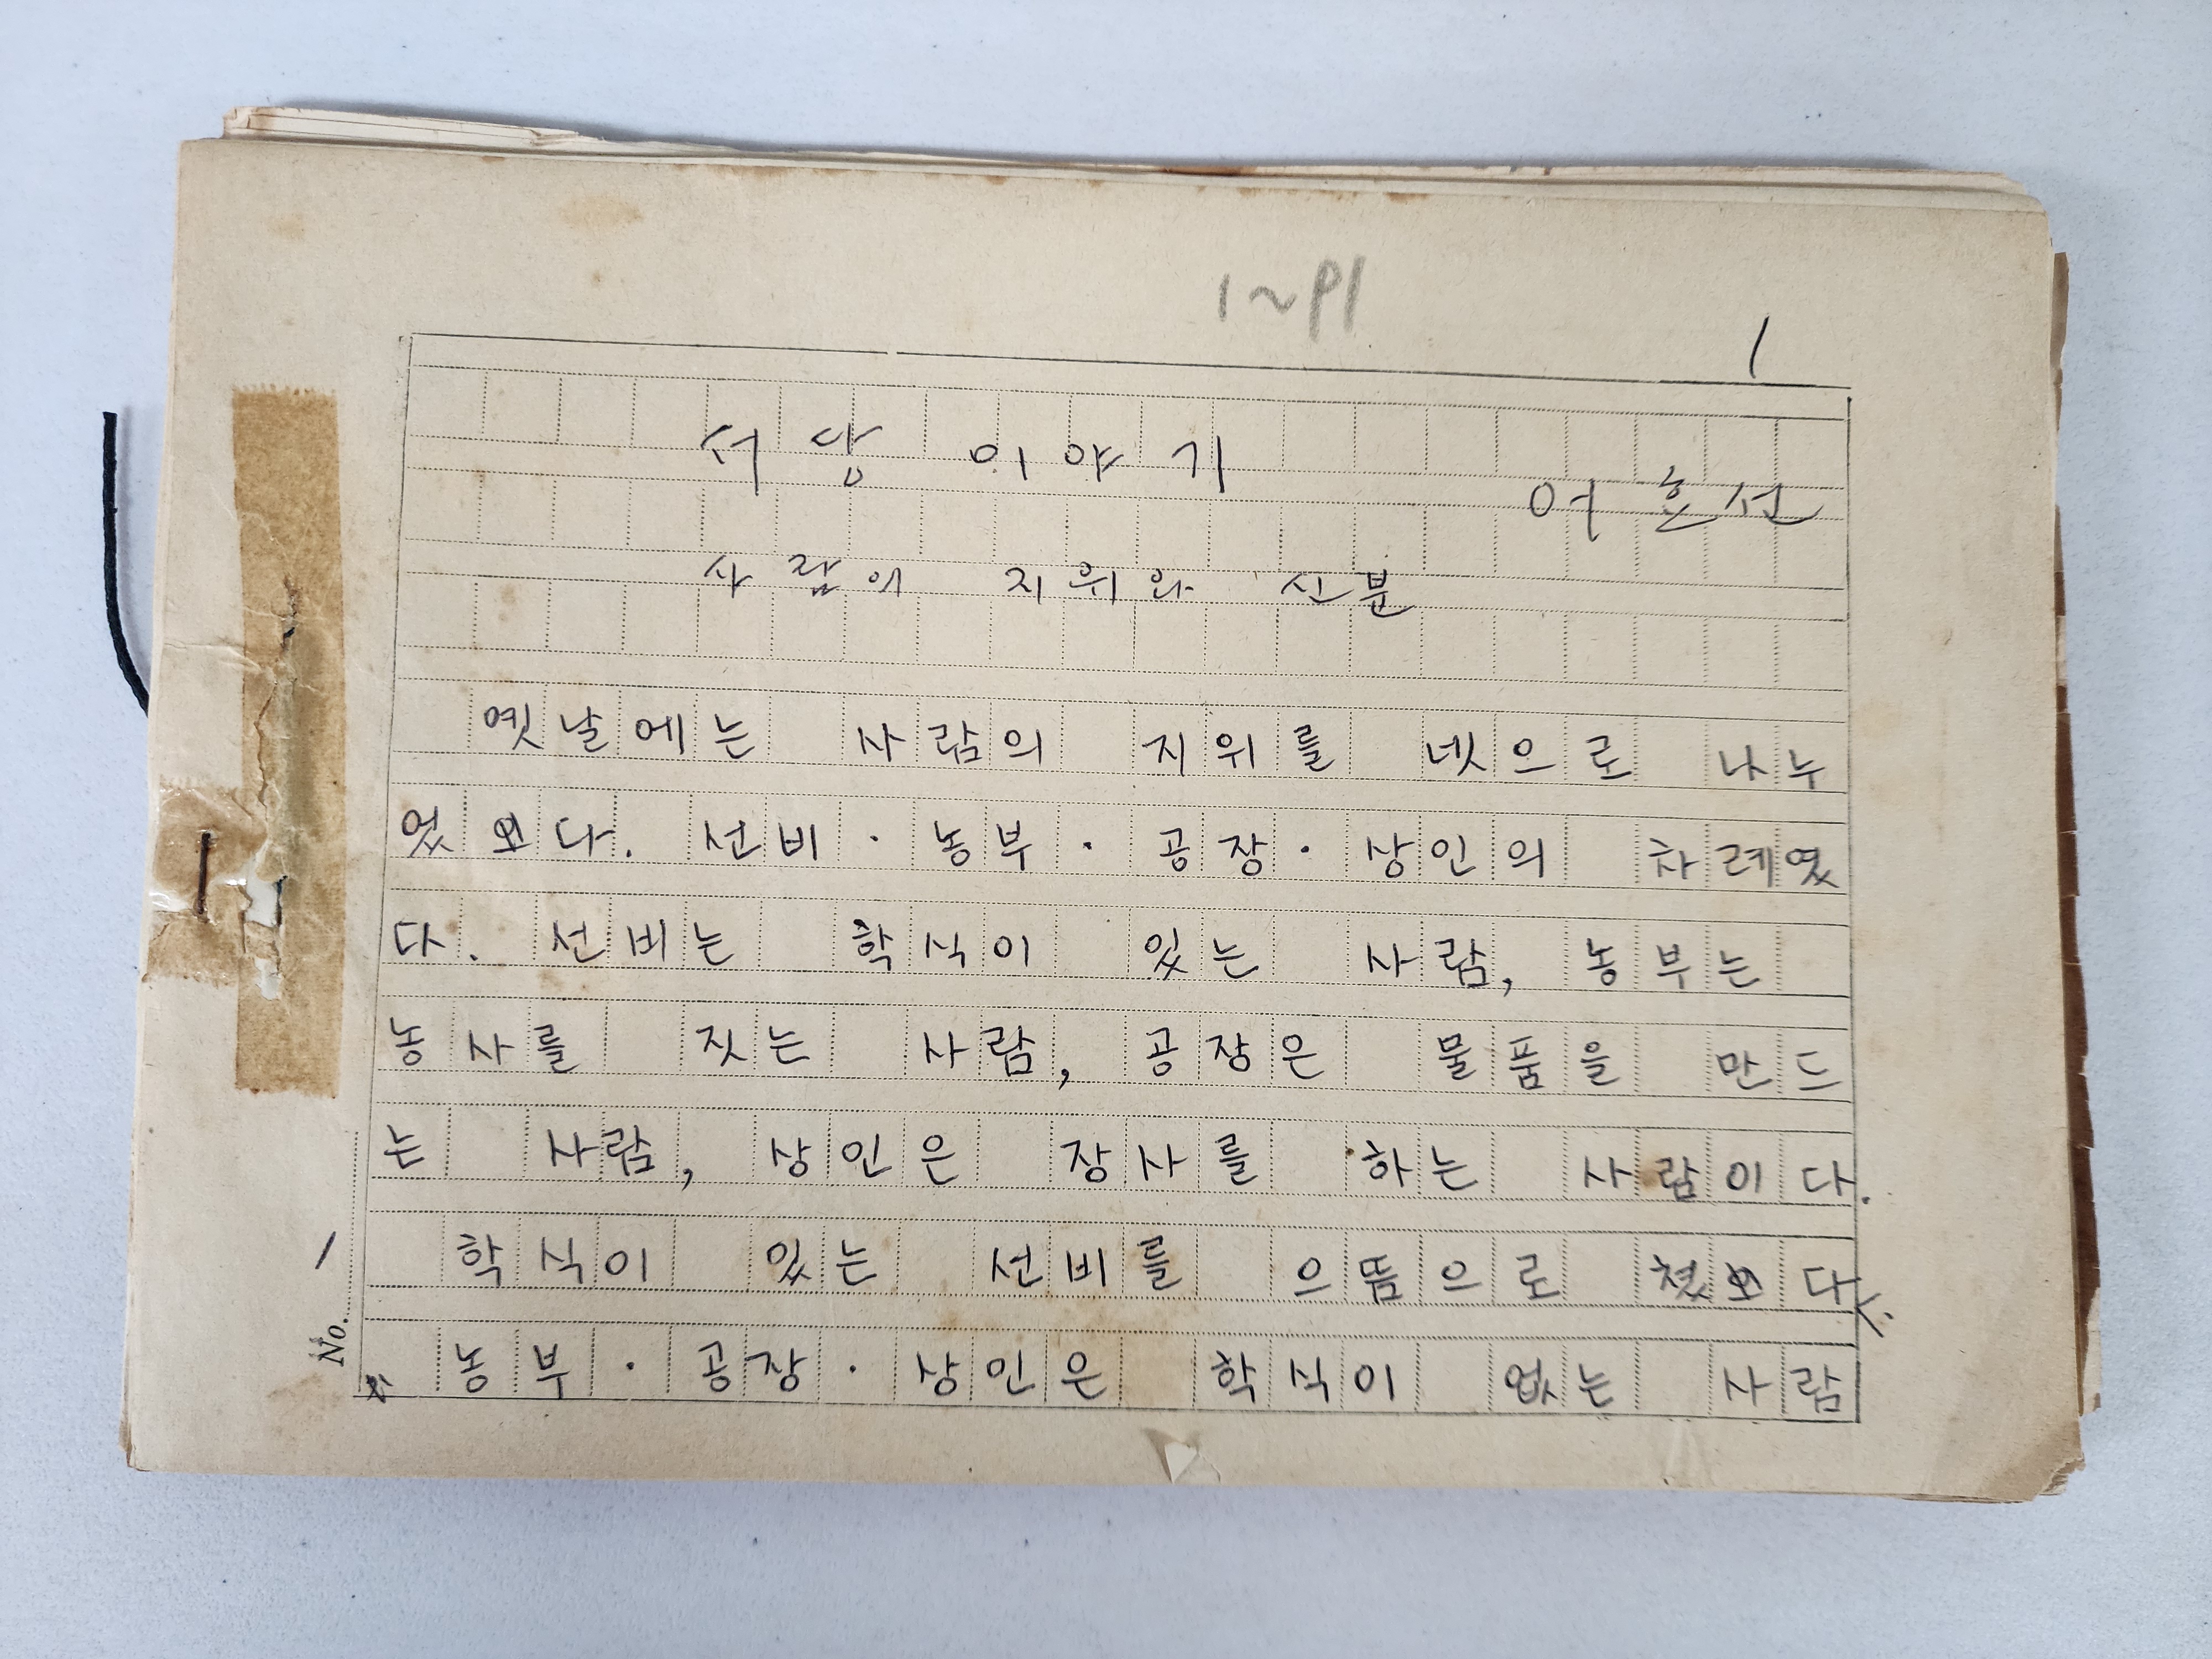 1~91
1
서당 이야기
어효선
사람의 지위와 신분
옛날에는 사람의 지위를 넷으로 나누
었다. 선비·농부·공장·상인의 차례였
다. 선비는 학식이 있는 사람, 농부는
농사를 짓는 사람, 공장은 물품을 만드
는 사람, 상인은 장사를 하는 사람이다.
학식이 있는 선비를 으뜸으로 쳤다.
농부·공장·상인은 학식이 없는 사람
No. 1